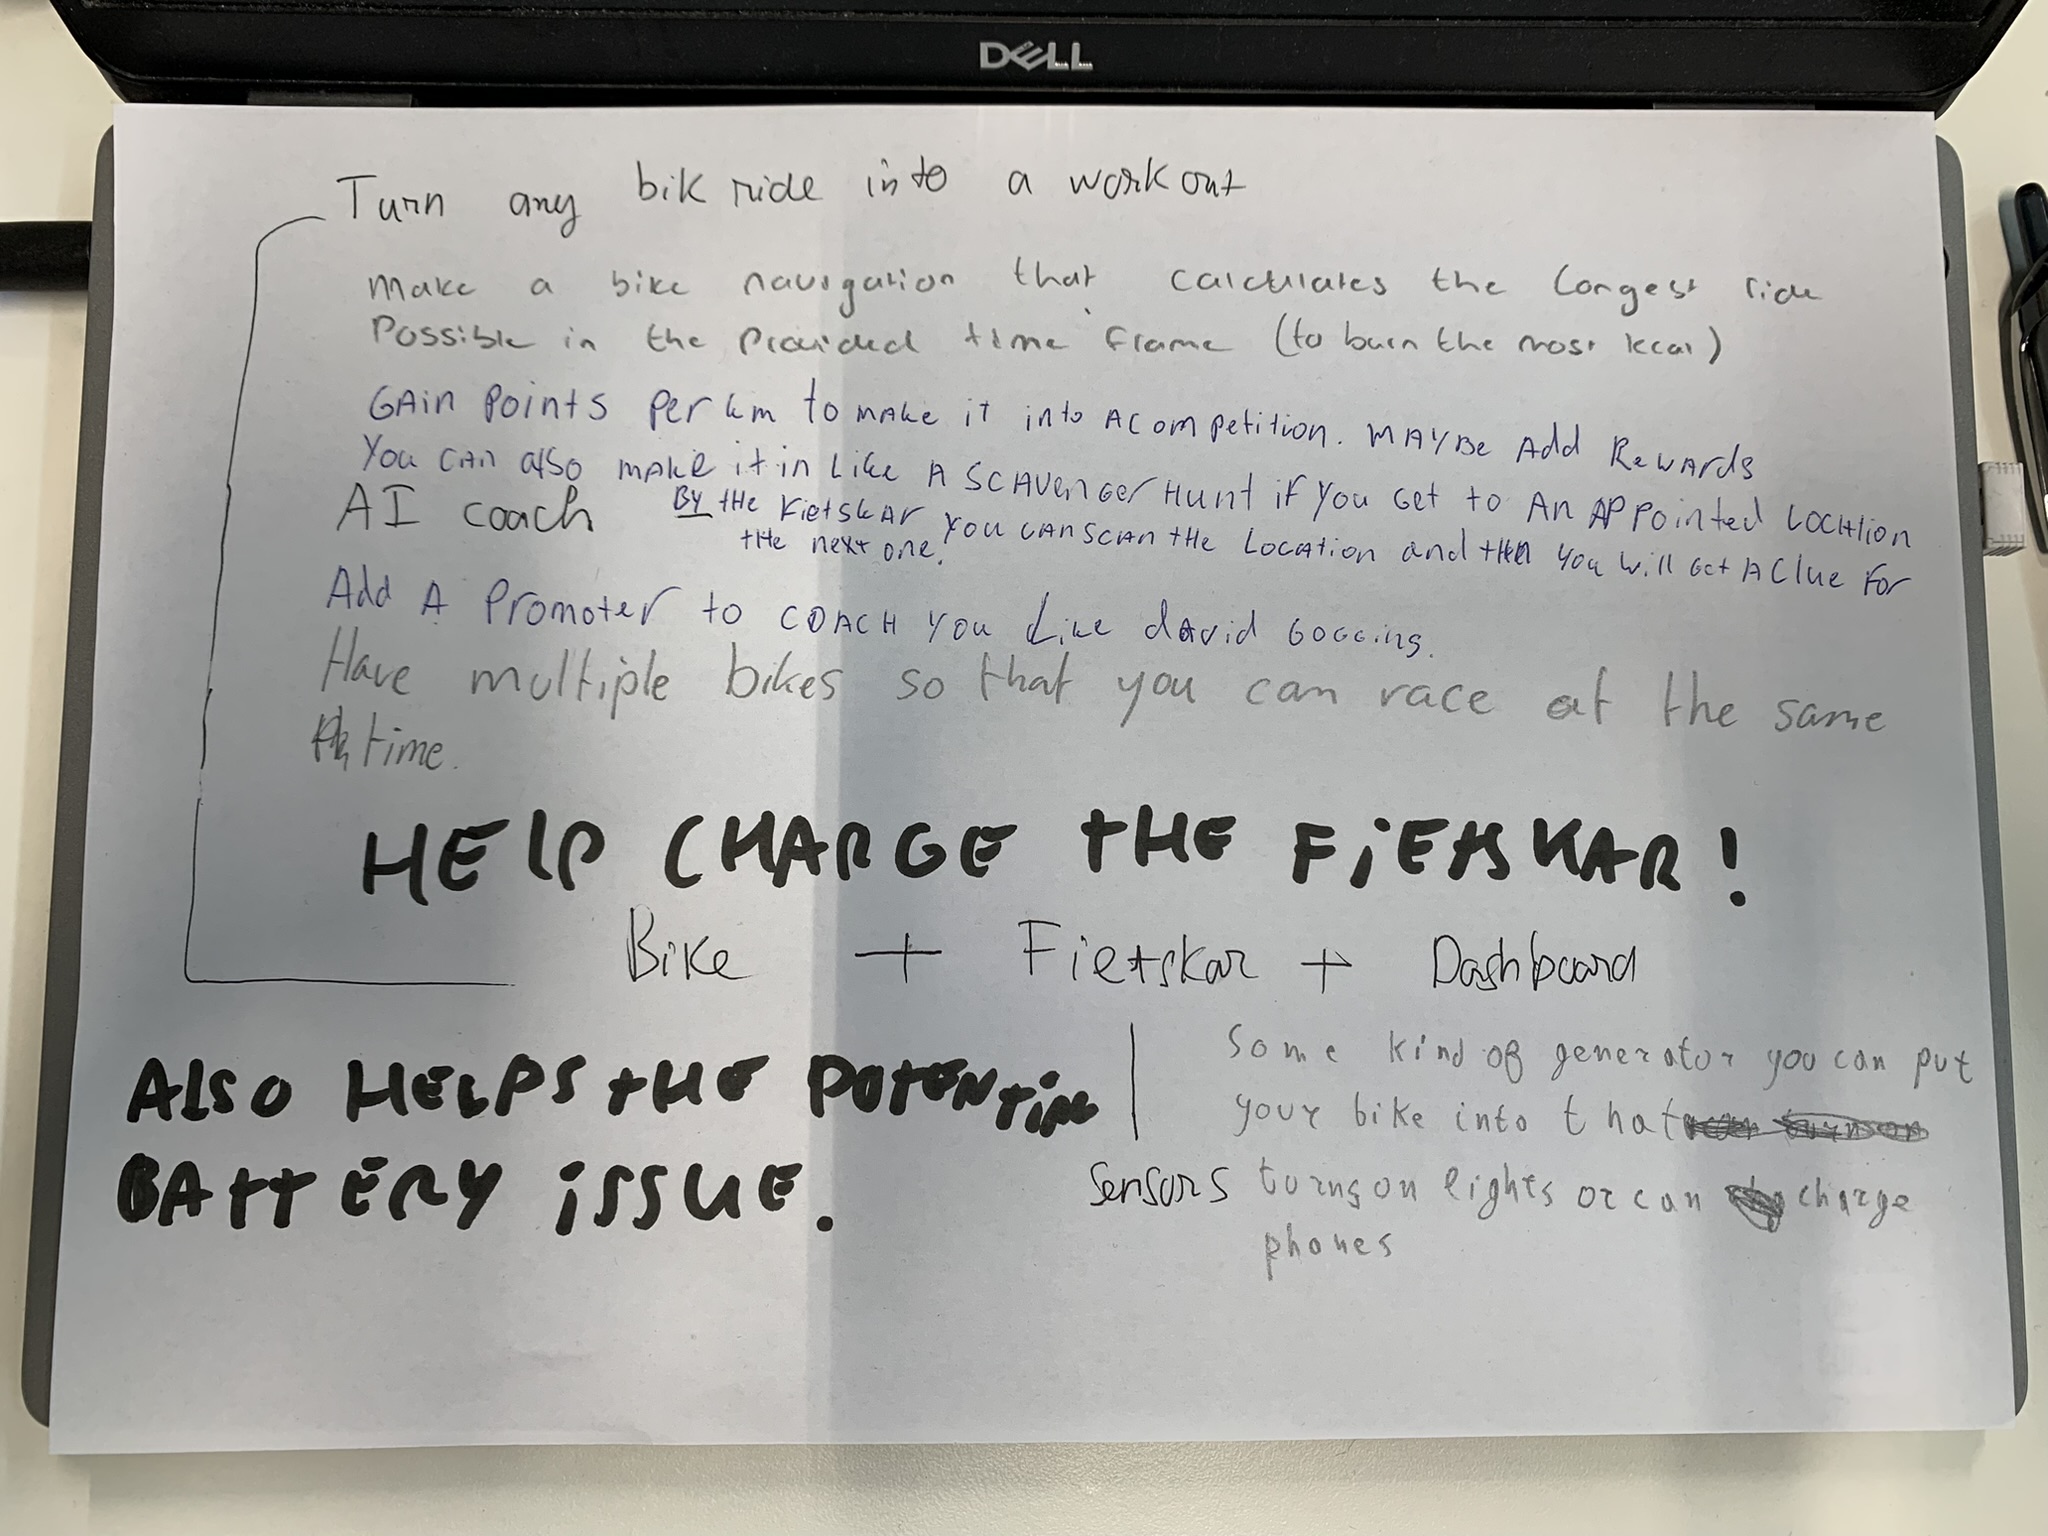 DELL
Turn any bik ride into a workout
Make a bike navigation that calculates the longest ride
Possible in the provided time frame (to burn the most kcal)
GAin Points Per km to make it into A competition. MAYBe Add Rewards
You can also make it in Like A SCAVenGer Hunt if You Get to An APPointed Location
AI coach
By the Fietskar You can scan the Location and then You will Get A Clue For
the next one.
Add A Promoter to COACH You Like david GOGGins.
Have multiple bikes so that you can race at the same
time.
HELP CHARGE tHE FiEtsKAR!
Bike + Fietskar + Dashboard
ALSO HELPS tHE POTENTiAL
BAttERY iSSUE.
Some kind of generator you can put
your bike into that
sensors turns on lights or can charge
phones